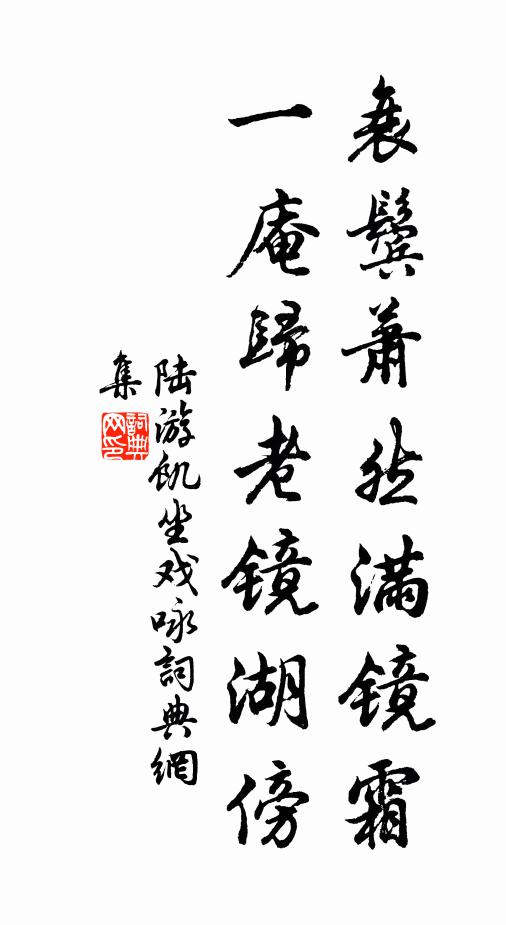 衰鬓萧然满镜霜
一庵歸老镜湖傍
陆游飢坐戏咏詞典網
集
詞典网印